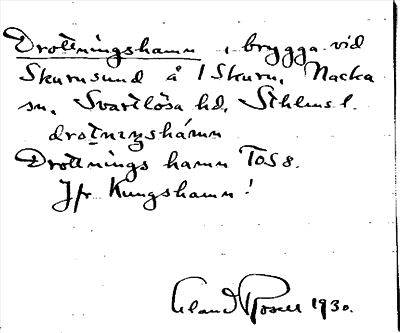 Drottningshamn, brygga vid
Skurusund å I Skuru, Nacka
sn, Svartlösa hd, Sthlms l.
drotnıŋshámn
Drottnings hamn TOS 8.
Jfr Kungshamn!
Erland Rosell 1930.